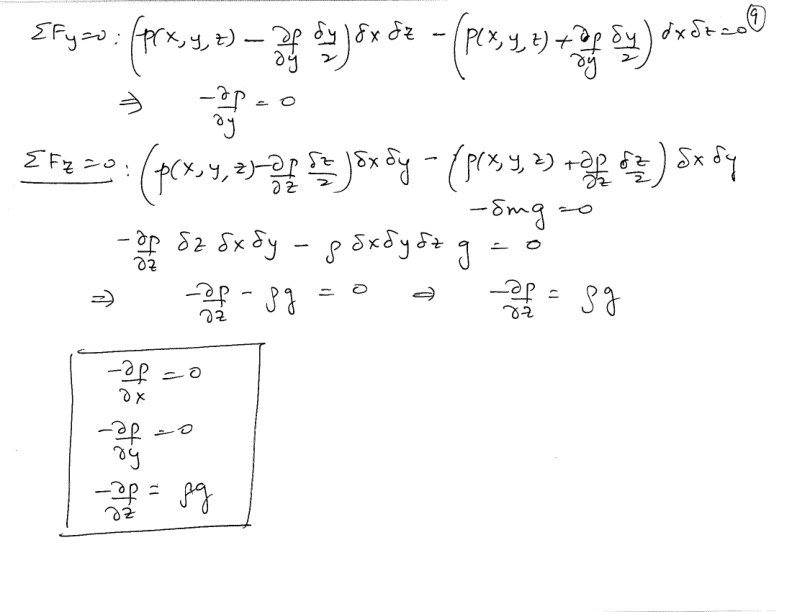 ΣFy=0: (p(x, y, z) − ∂p/∂y δy/2) δx δz − (p(x, y, z) + ∂p/∂y δy/2) dx δz = 0 9
⇒ −∂p/∂y = 0
ΣFz = 0: (p(x, y, z) − ∂p/∂z δz/2) δx δy − (p(x, y, z) + ∂p/∂z δz/2) δx δy
− δmg = 0
−∂p/∂z δz δx δy − ρ δx δy δz g = 0
⇒ −∂p/∂z − ρg = 0 ⇒ −∂p/∂z = ρg
−∂p/∂x = 0
−∂p/∂y = 0
−∂p/∂z = ρg